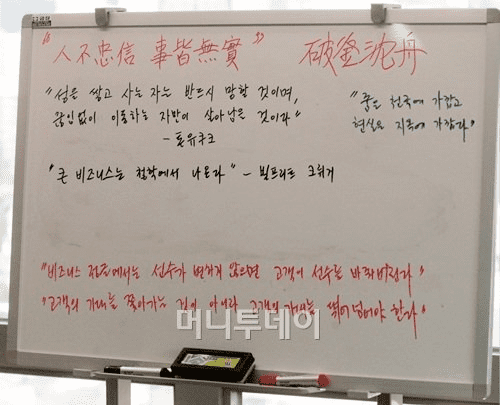 "人不忠信 事皆無實" 破釜沈舟
"성을 쌓고 사는 자는 반드시 망할 것이며,
끊임없이 이동하는 자만이 살아남을 것이다"
- 톤유쿠크
"꿈은 천국에 가깝고
현실은 지옥에 가깝다"
"큰 비즈니스는 철학에서 나온다" - 빌프리드 크뤼거
"비즈니스 전쟁에서는 선수가 변하지 않으면 고객이 선수를 바꿔버린다"
"고객의 기대를 쫓아가는 것이 아니라 고객의 기대를 뛰어넘어야 한다"
머니투데이